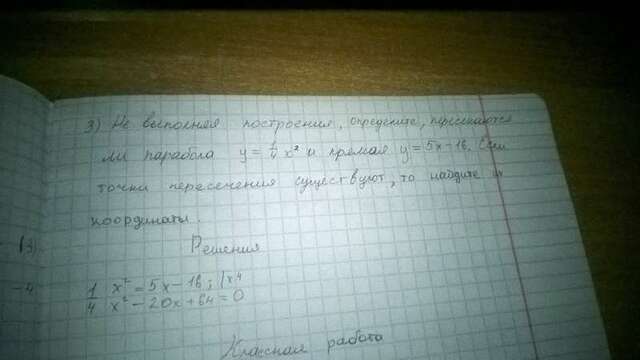 3) Не выполняя построения, определите, пересекаются
ли парабола y = 1/4 x² и прямая y = 5x - 16. Если
точки пересечения существуют, то найдите их
координаты.
Решения
1/4 x² = 5x - 16; | x4
x² - 20x + 64 = 0
Классная работа
-4